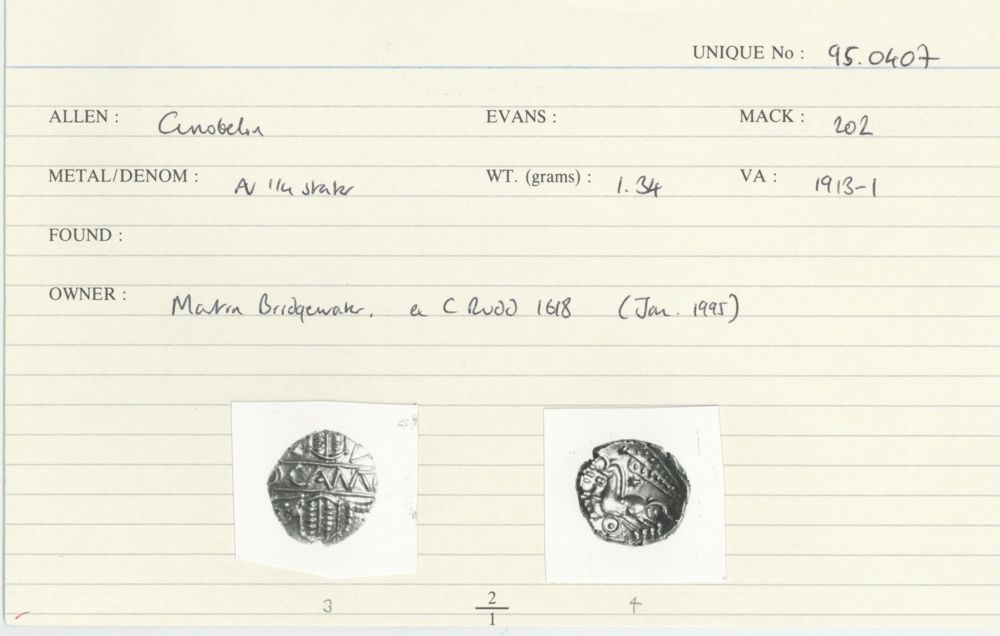 UNIQUE No : 95.0407
ALLEN : Cunobelin EVANS : MACK : 202
METAL/DENOM : AV 1/4 stater WT. (grams) : 1.34 VA : 1913-1
FOUND :
OWNER : Martin Bridgewater, ex C Rudd 1618 (Jan. 1995)
CAM
3 2/1 4